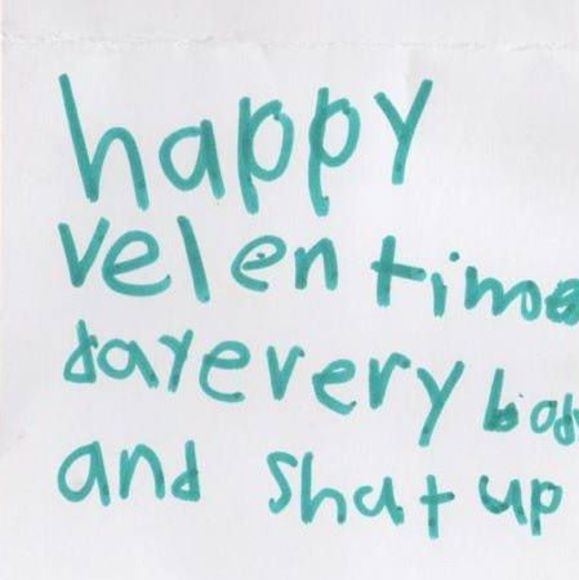 happy
velentime
dayevery bod
and shut up